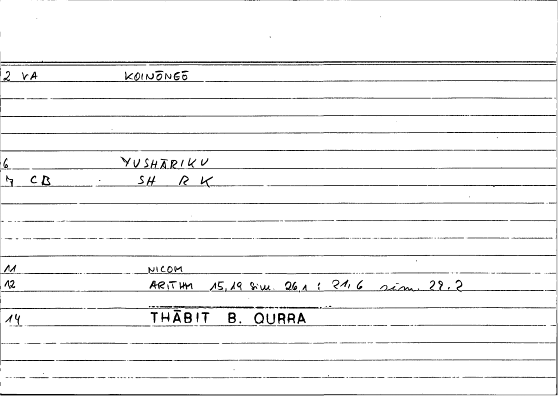 2 VA KOINŌNEŌ
6 YUSHĀRIKU
7 CB SH R K
11 NICOM
12 ARITHM 15,19 sim. 26,1 : 21,6 sim. 29,2
14 THĀBIT B. QURRA